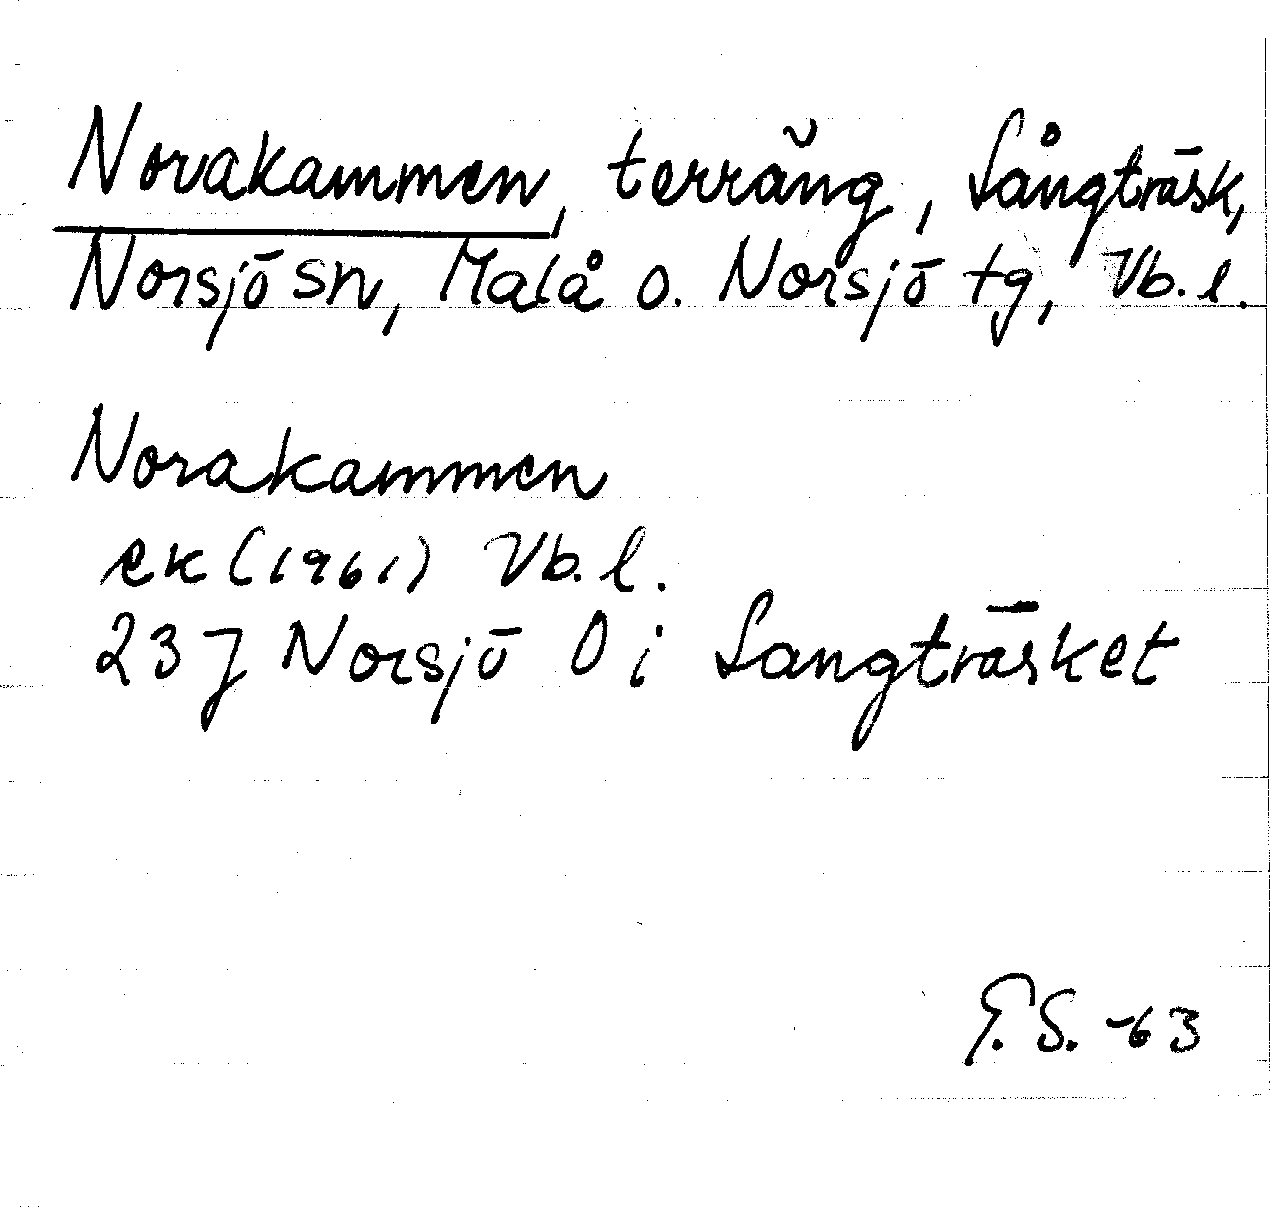 Norakammen, terräng, Långträsk,
Norsjö sn, Malå o. Norsjö tg, Vb. l.
Norakammen
ek (1961) Vb. l.
23 J Norsjö 0 i Långträsket
G. S. -63